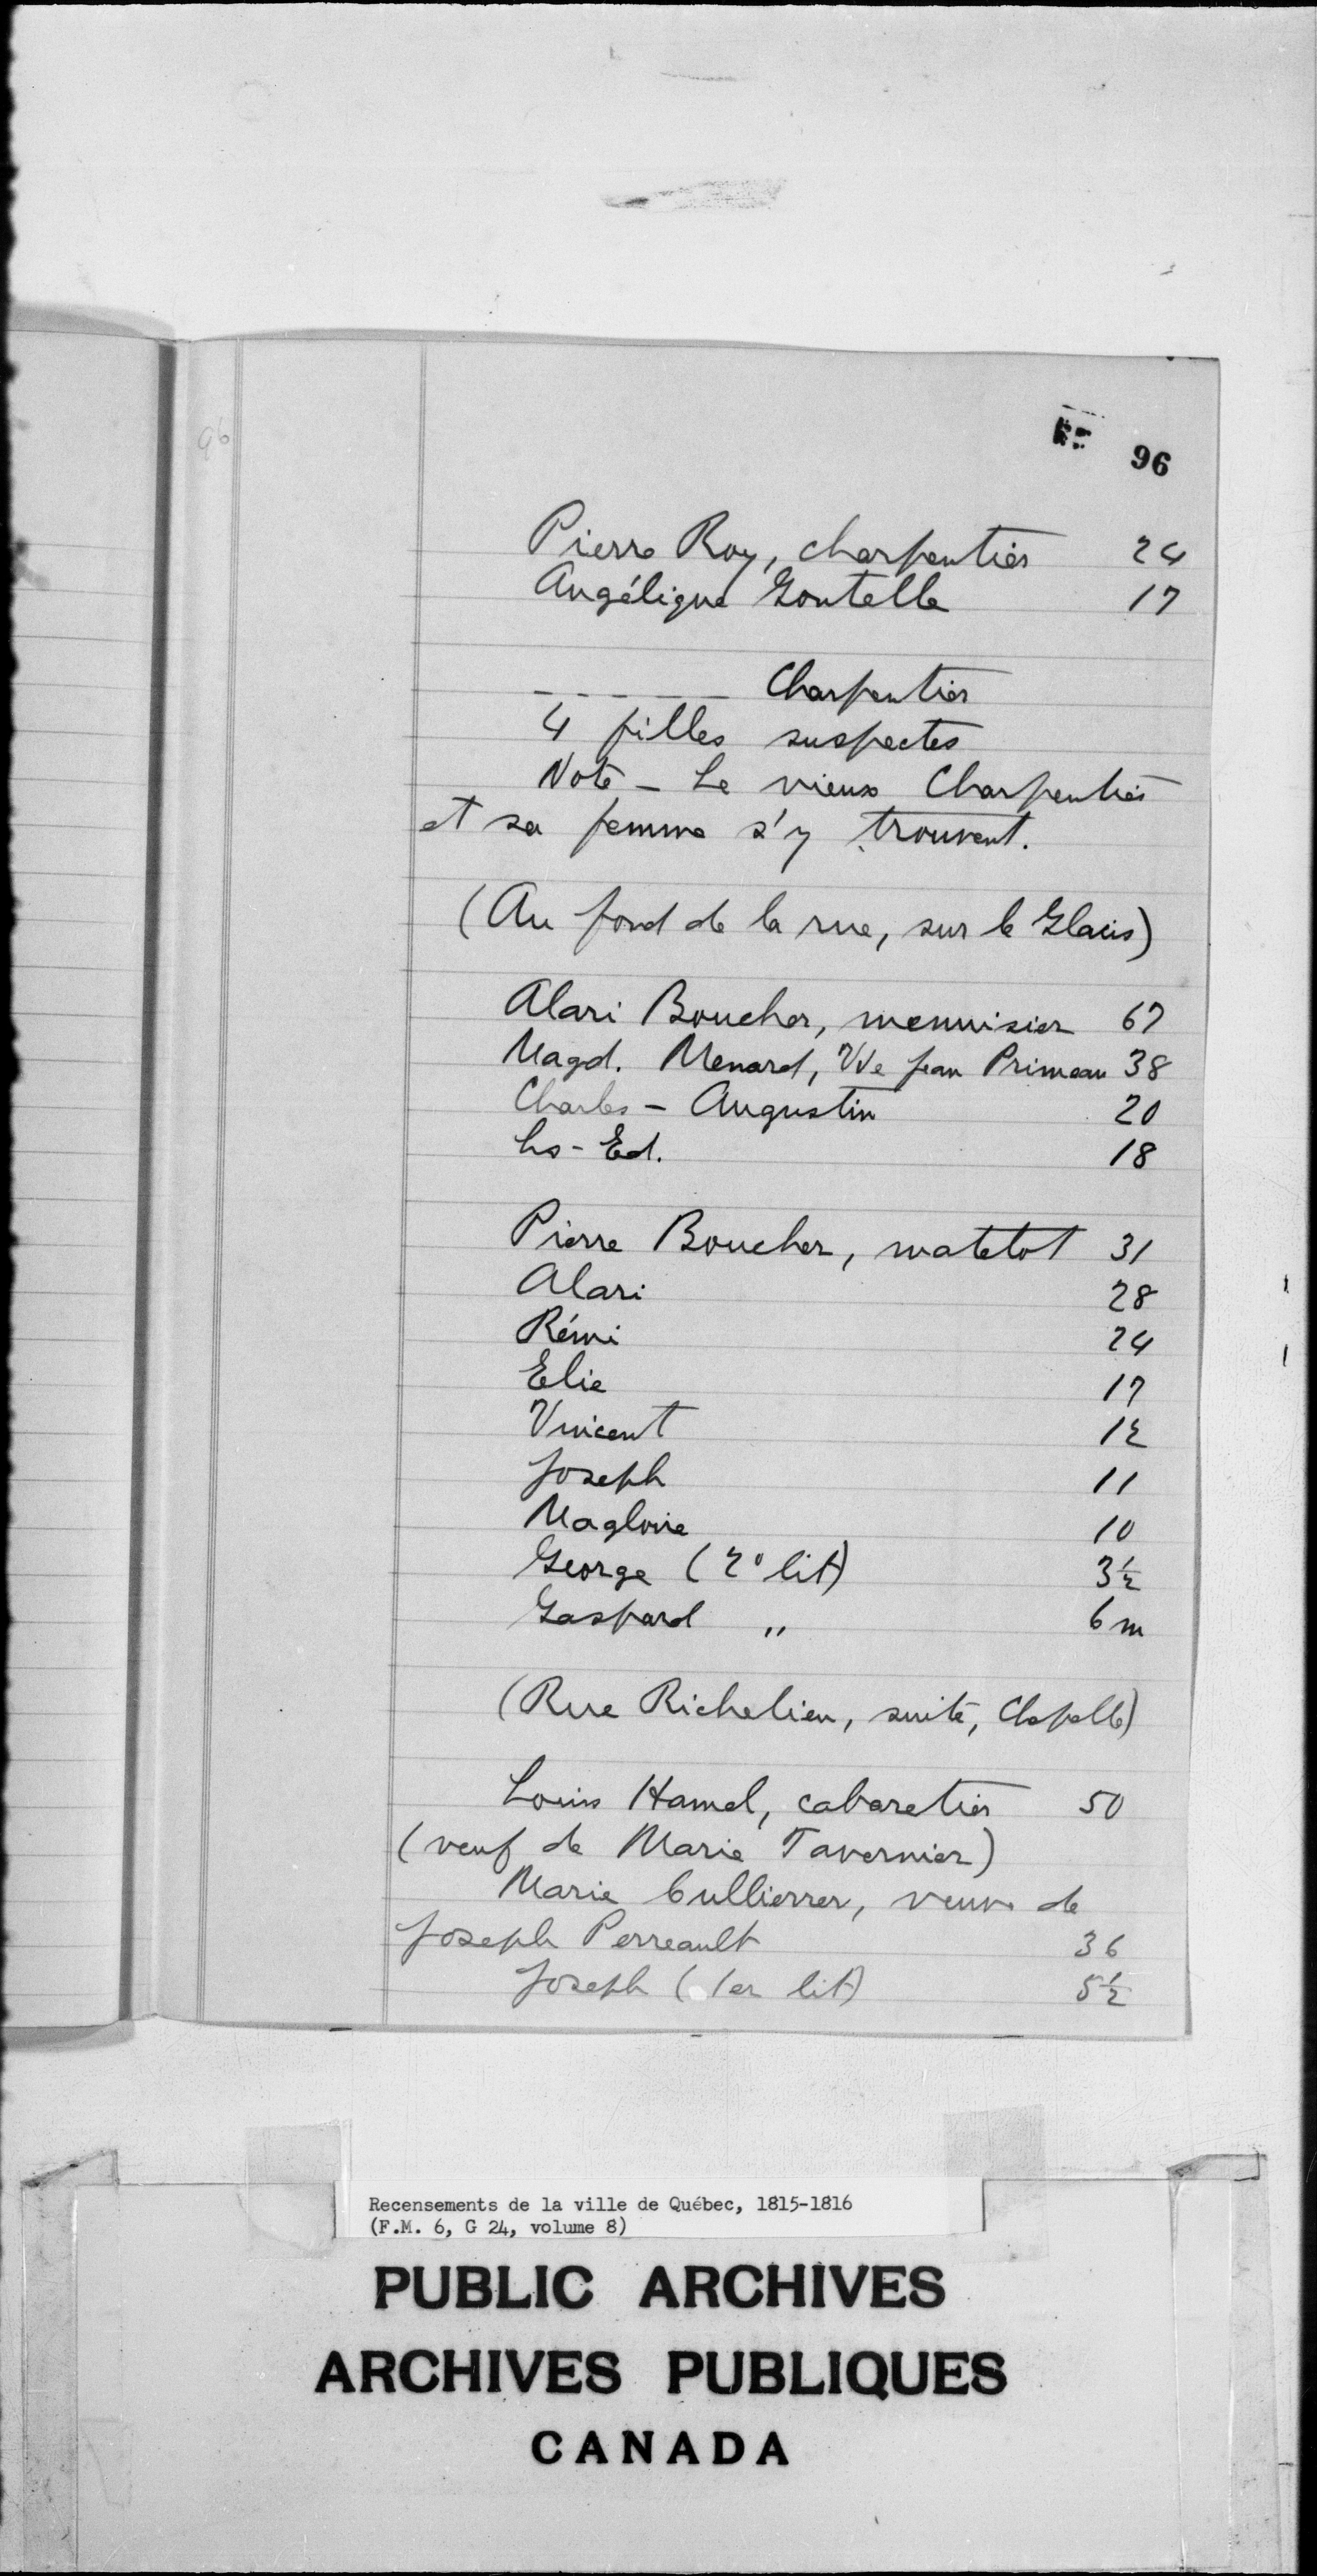 96
96
Pierre Roy, charpentier 24
Angélique Goutelle 17
------ Charpentier
4 filles suspectes
Note - Le vieux Charpentier
et sa femme s'y trouvent.
(Au fond de la rue, sur le Glacis)
Alari Boucher, menuisier 67
Magd. Menard, Vve Jean Primeau 38
Charles - Augustin 20
Ls - Ed. 18
Pierre Boucher, matelot 31
Alari 28
Rémi 24
Elie 17
Vincent 12
Joseph 11
Magloire 10
George (2° lit) 3½
Gaspard " 6 m
(Rue Richelieu, suite, Chapelle)
Louis Hamel, cabaretier 50
(veuf de Marie Tavernier)
Marie Cullierrer, veuve de
Joseph Perreault 36
Joseph (1er lit) 5½
Recensements de la ville de Québec, 1815-1816
(F.M. 6, G 24, volume 8)
PUBLIC ARCHIVES
ARCHIVES PUBLIQUES
CANADA